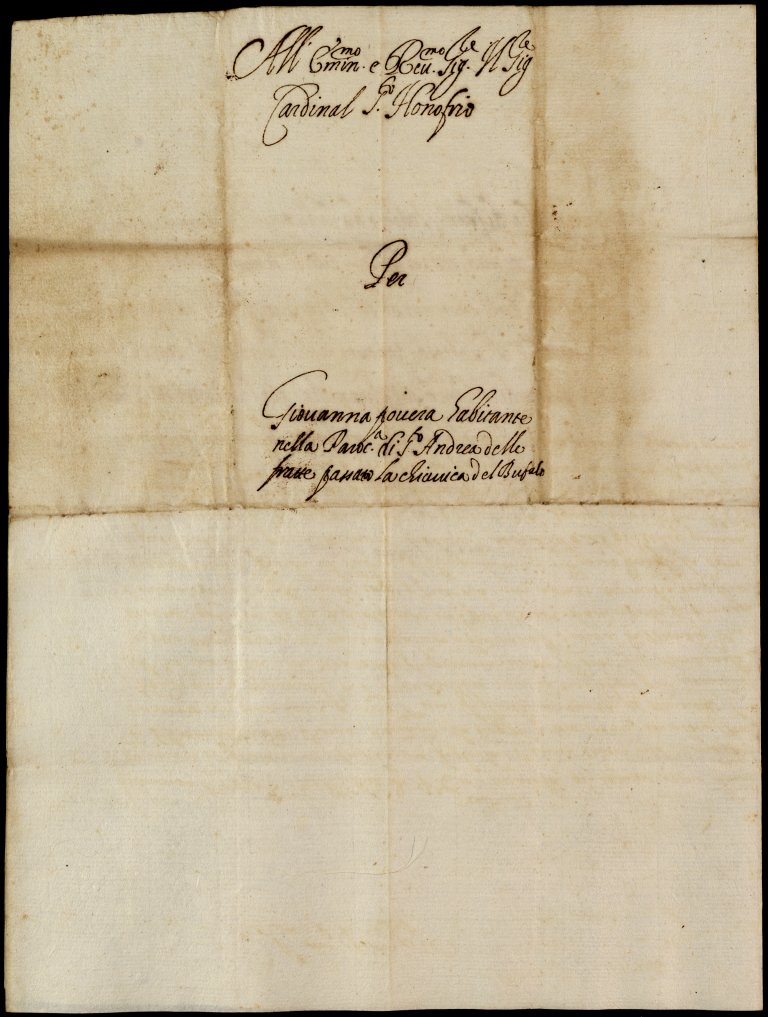 All' Emin.mo e Reu.mo Sig.re Il Sig.re
Cardinal S.to Honofrio
Per
Giouanna pouera habitante
nella Paroc.a di S.to Andrea delle
fratte passato la chiauica del Bufalo